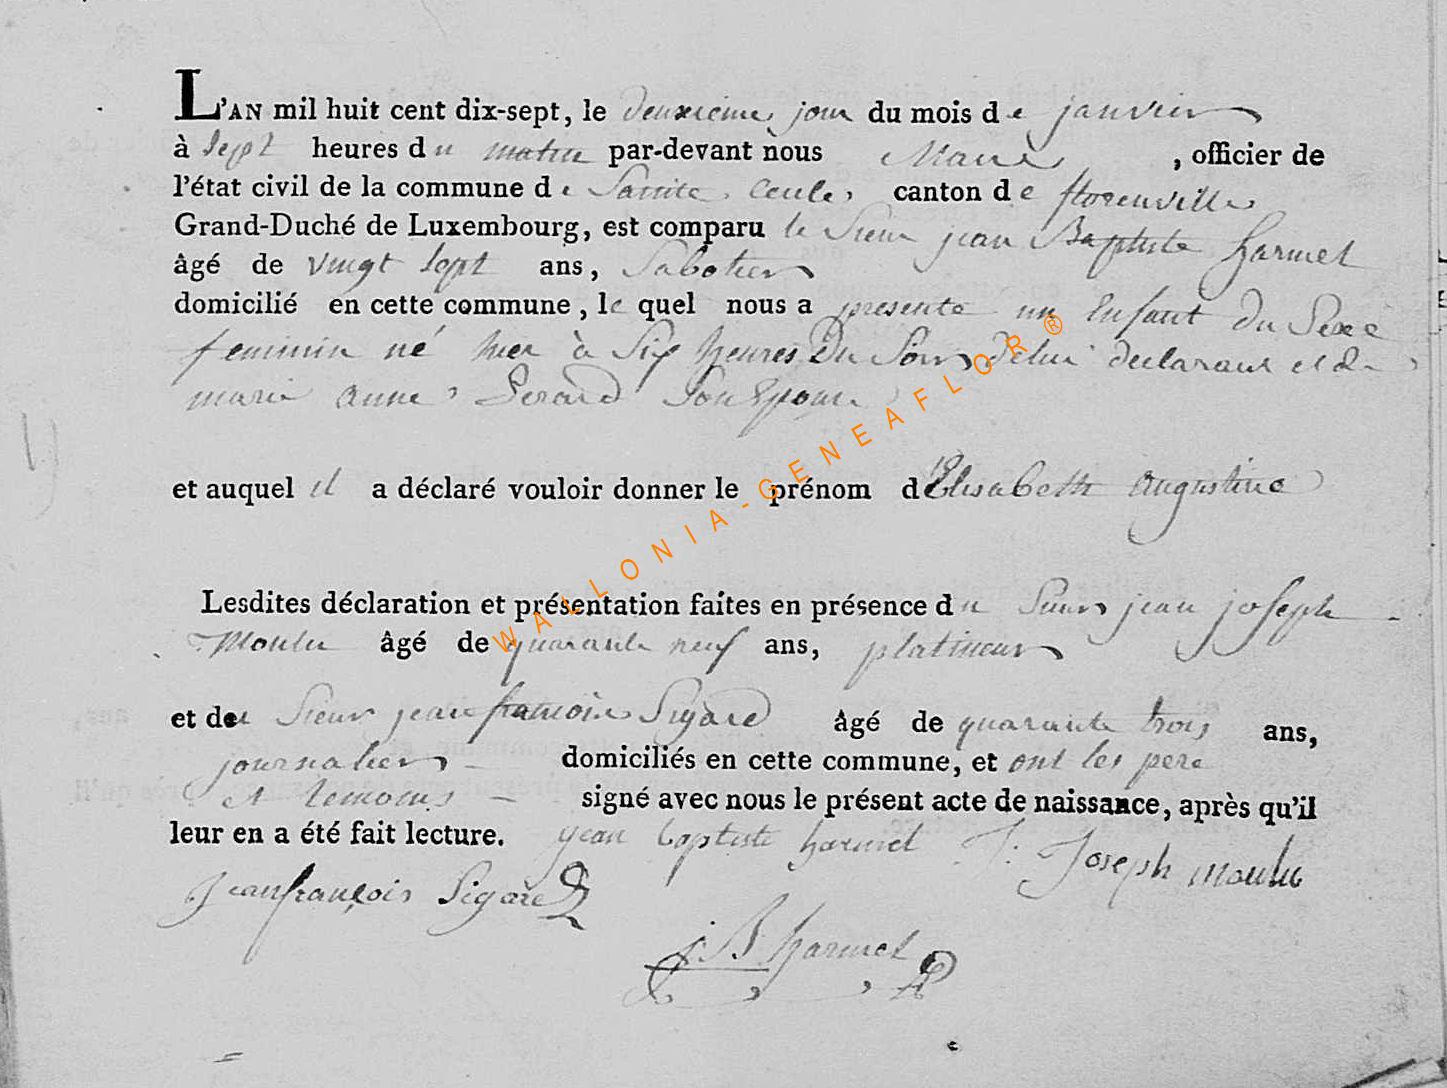 L'AN mil huit cent dix-sept, le deuxieme jour du mois de janvier
à sept heures du matin par-devant nous Maire , officier de
l'état civil de la commune de Sainte Cecile canton de florenville
Grand-Duché de Luxembourg, est comparu le Sieur jean Baptiste harmel
âgé de vingt sept ans, Sabotier
domicilié en cette commune, le quel nous a presenté un Enfant du Sexe
feminin né hier à Six heures Du Soir de lui declarant et de
marie anne Gerard Son Epouse
et auquel il a déclaré vouloir donner le prénom d'Elisabeth augustine
Lesdites déclaration et présentation faites en présence du Sieur jean joseph
Moulu âgé de quarante neuf ans, platineur
et de Sieur jean françois Sigard âgé de quarante trois ans,
journalier domiciliés en cette commune, et ont les pere
et temoins signé avec nous le présent acte de naissance, après qu'il
leur en a été fait lecture. jean baptiste harmel J. Joseph moulu
Jean françois Sigard
j B harmel
WALLONIA-GENEAFLOR®